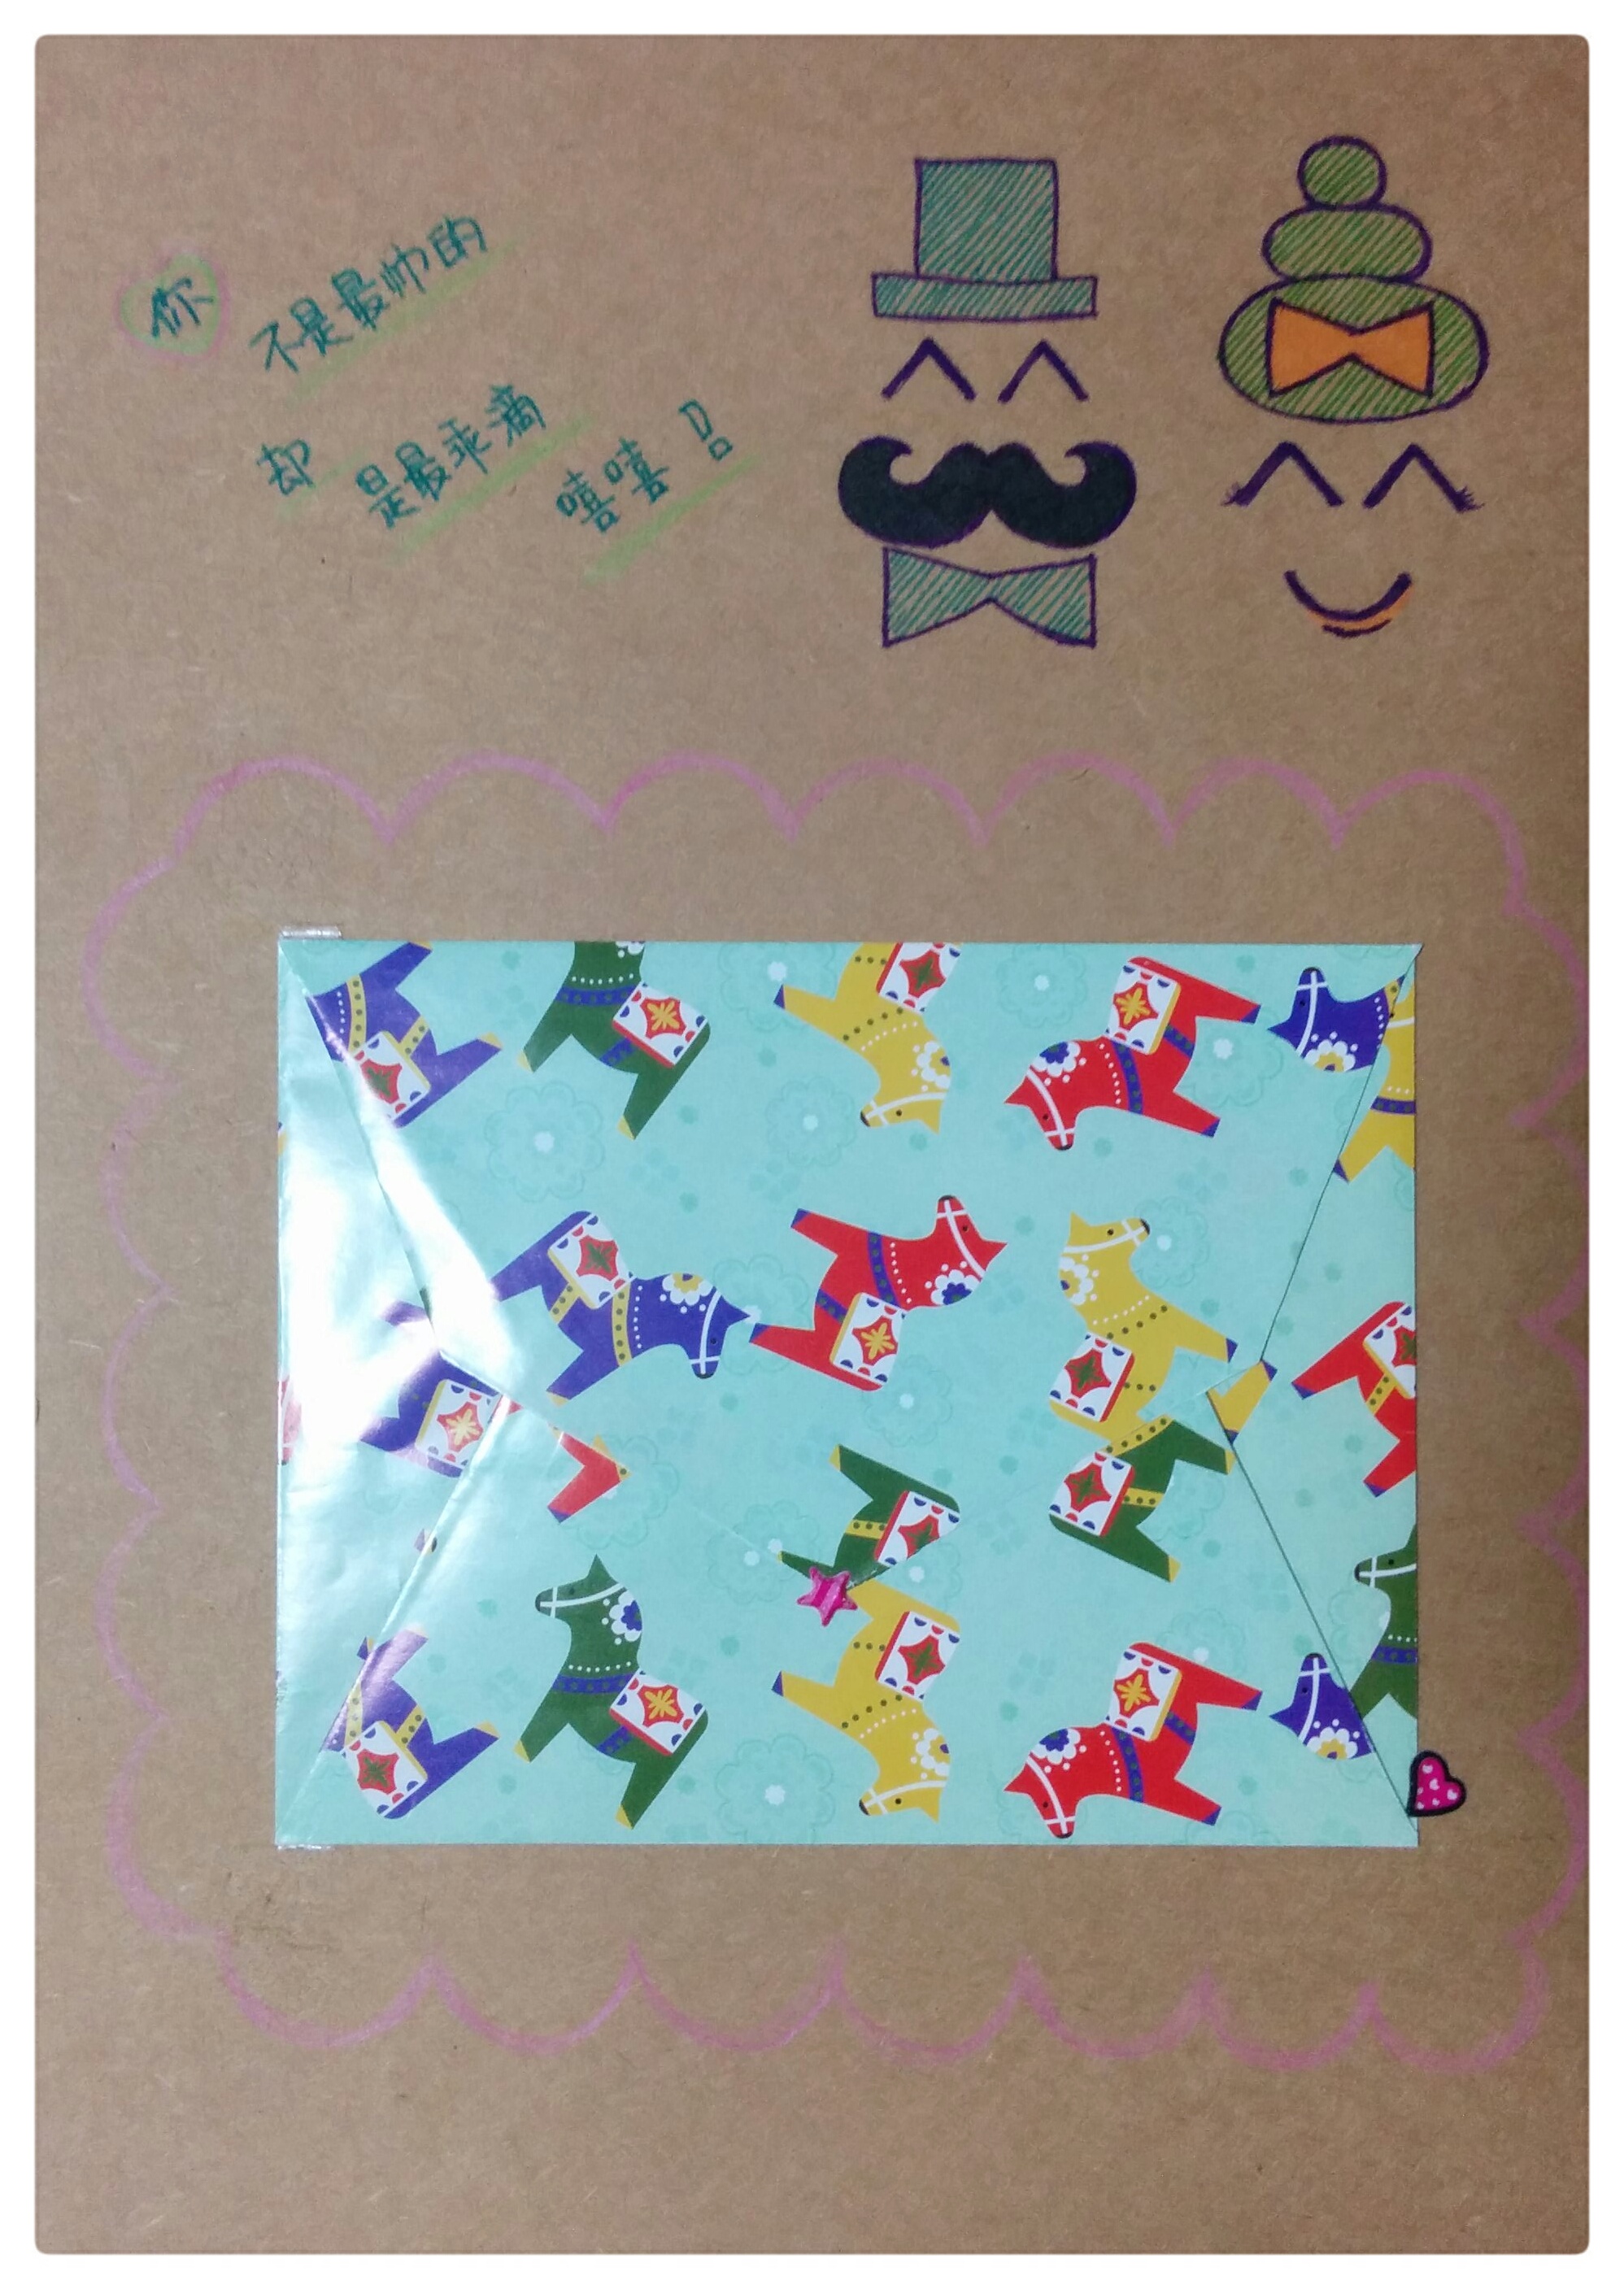 你 不是最帅的
却 是最乖滴
嘻嘻!